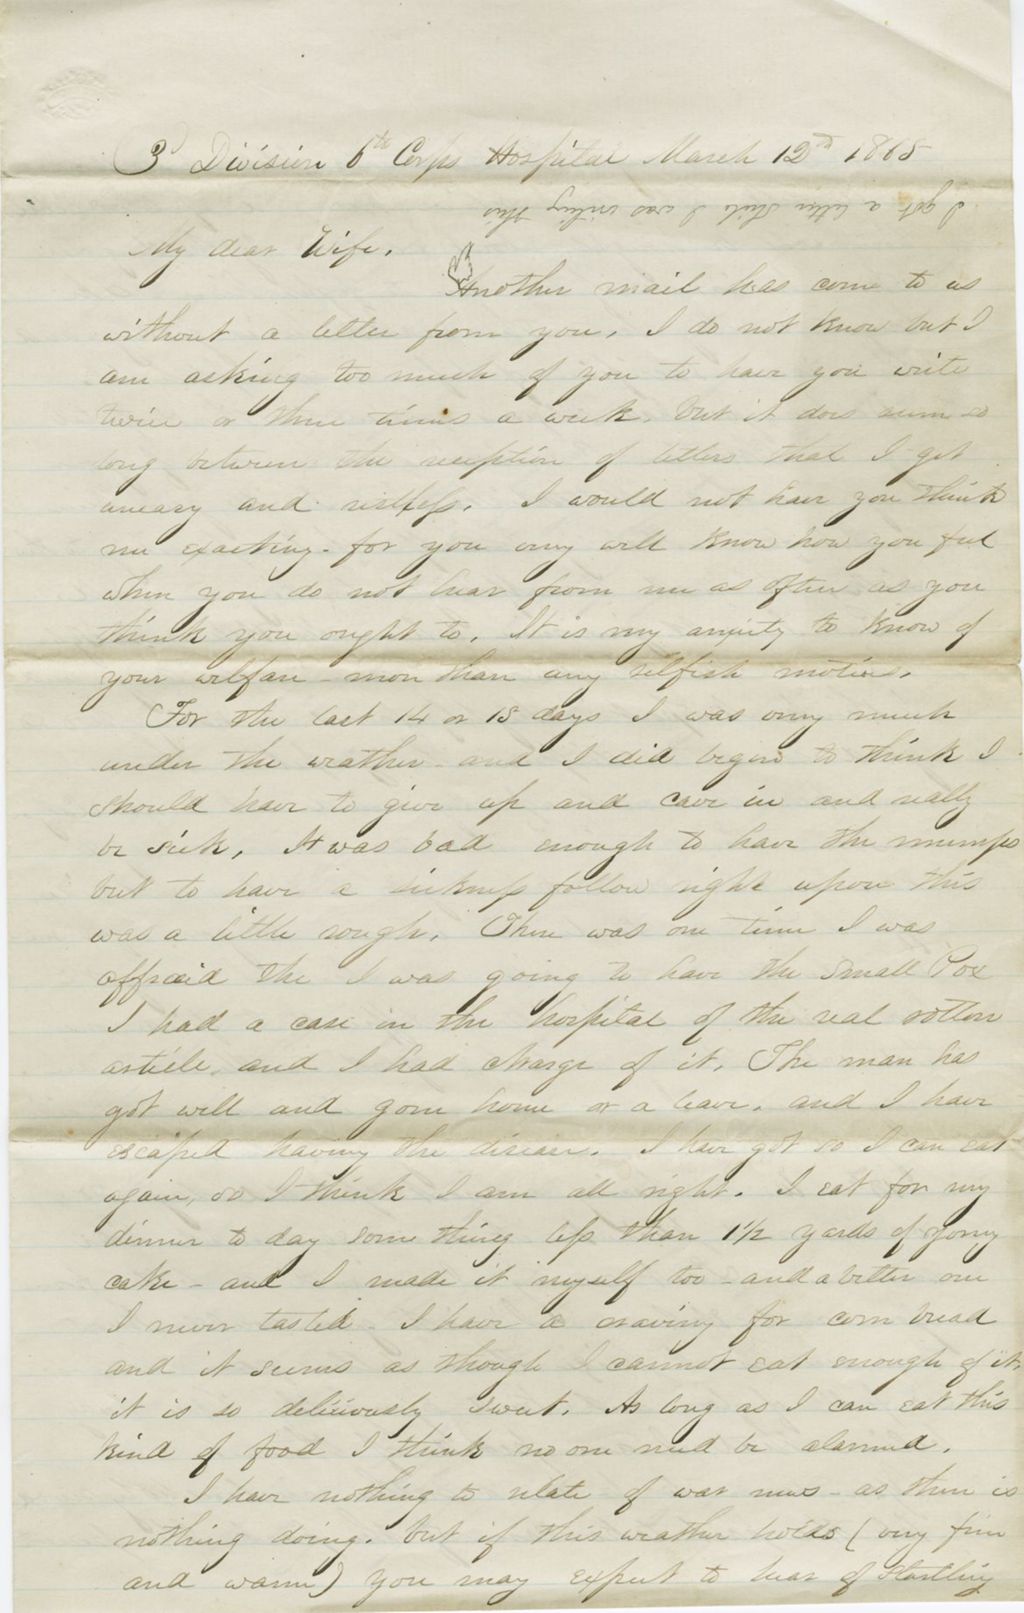 3d Division 6th Corps Hospital March 12th 1865
I got a letter while I was writing this
My dear Wife.
Another mail has come to us
without a letter from you. I do not know but I
am asking too much of you to have you write
twice or three times a week. but it does seem so
long between the reception of letters that I get
uneasy and restless. I would not have you think
me exacting - for you very well know how you feel
when you do not hear from me as often as you
think you ought to. It is my anxiety to know of
your welfare - more than any selfish motives.
For the last 14 or 15 days I was very much
under the weather - and I did begin to think I
should have to give up and cave in and really
be sick. It was bad enough to have the mumps
but to have a sickness follow right upon this
was a little rough. There was one time I was
affraid the I was going to have the Small Pox
I had a case in the hospital of the real rotten
article, and I had charge of it. The man has
got well and gone home on a leave. and I have
escaped having the disease. I have got so I can eat
again, so I think I am all right. I eat for my
dinner to day some thing less than 1½ yards of Jonny
cake - and I made it myself too - and a better one
I never tasted - I have a craving for corn bread
and it seems as though I cannot eat enough of it,
it is so deliciously sweet. As long as I can eat this
kind of food I think no one need be alarmed.
I have nothing to relate of war news - as there is
nothing doing. but if this weather holds (very fine
and warm) you may expect to hear of startling